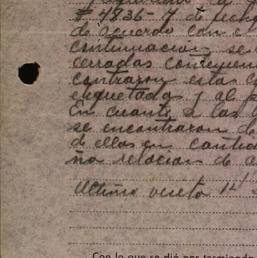 # 4836- y de fecha
de acuerdo con e
continuacion, se
cerradas
contraron estas c
etiquetadas y al p
En cuanto a las
se encontraron d
de ellas en cantid
ño relacion de a
Ultimo
Con lo que se dió por terminado